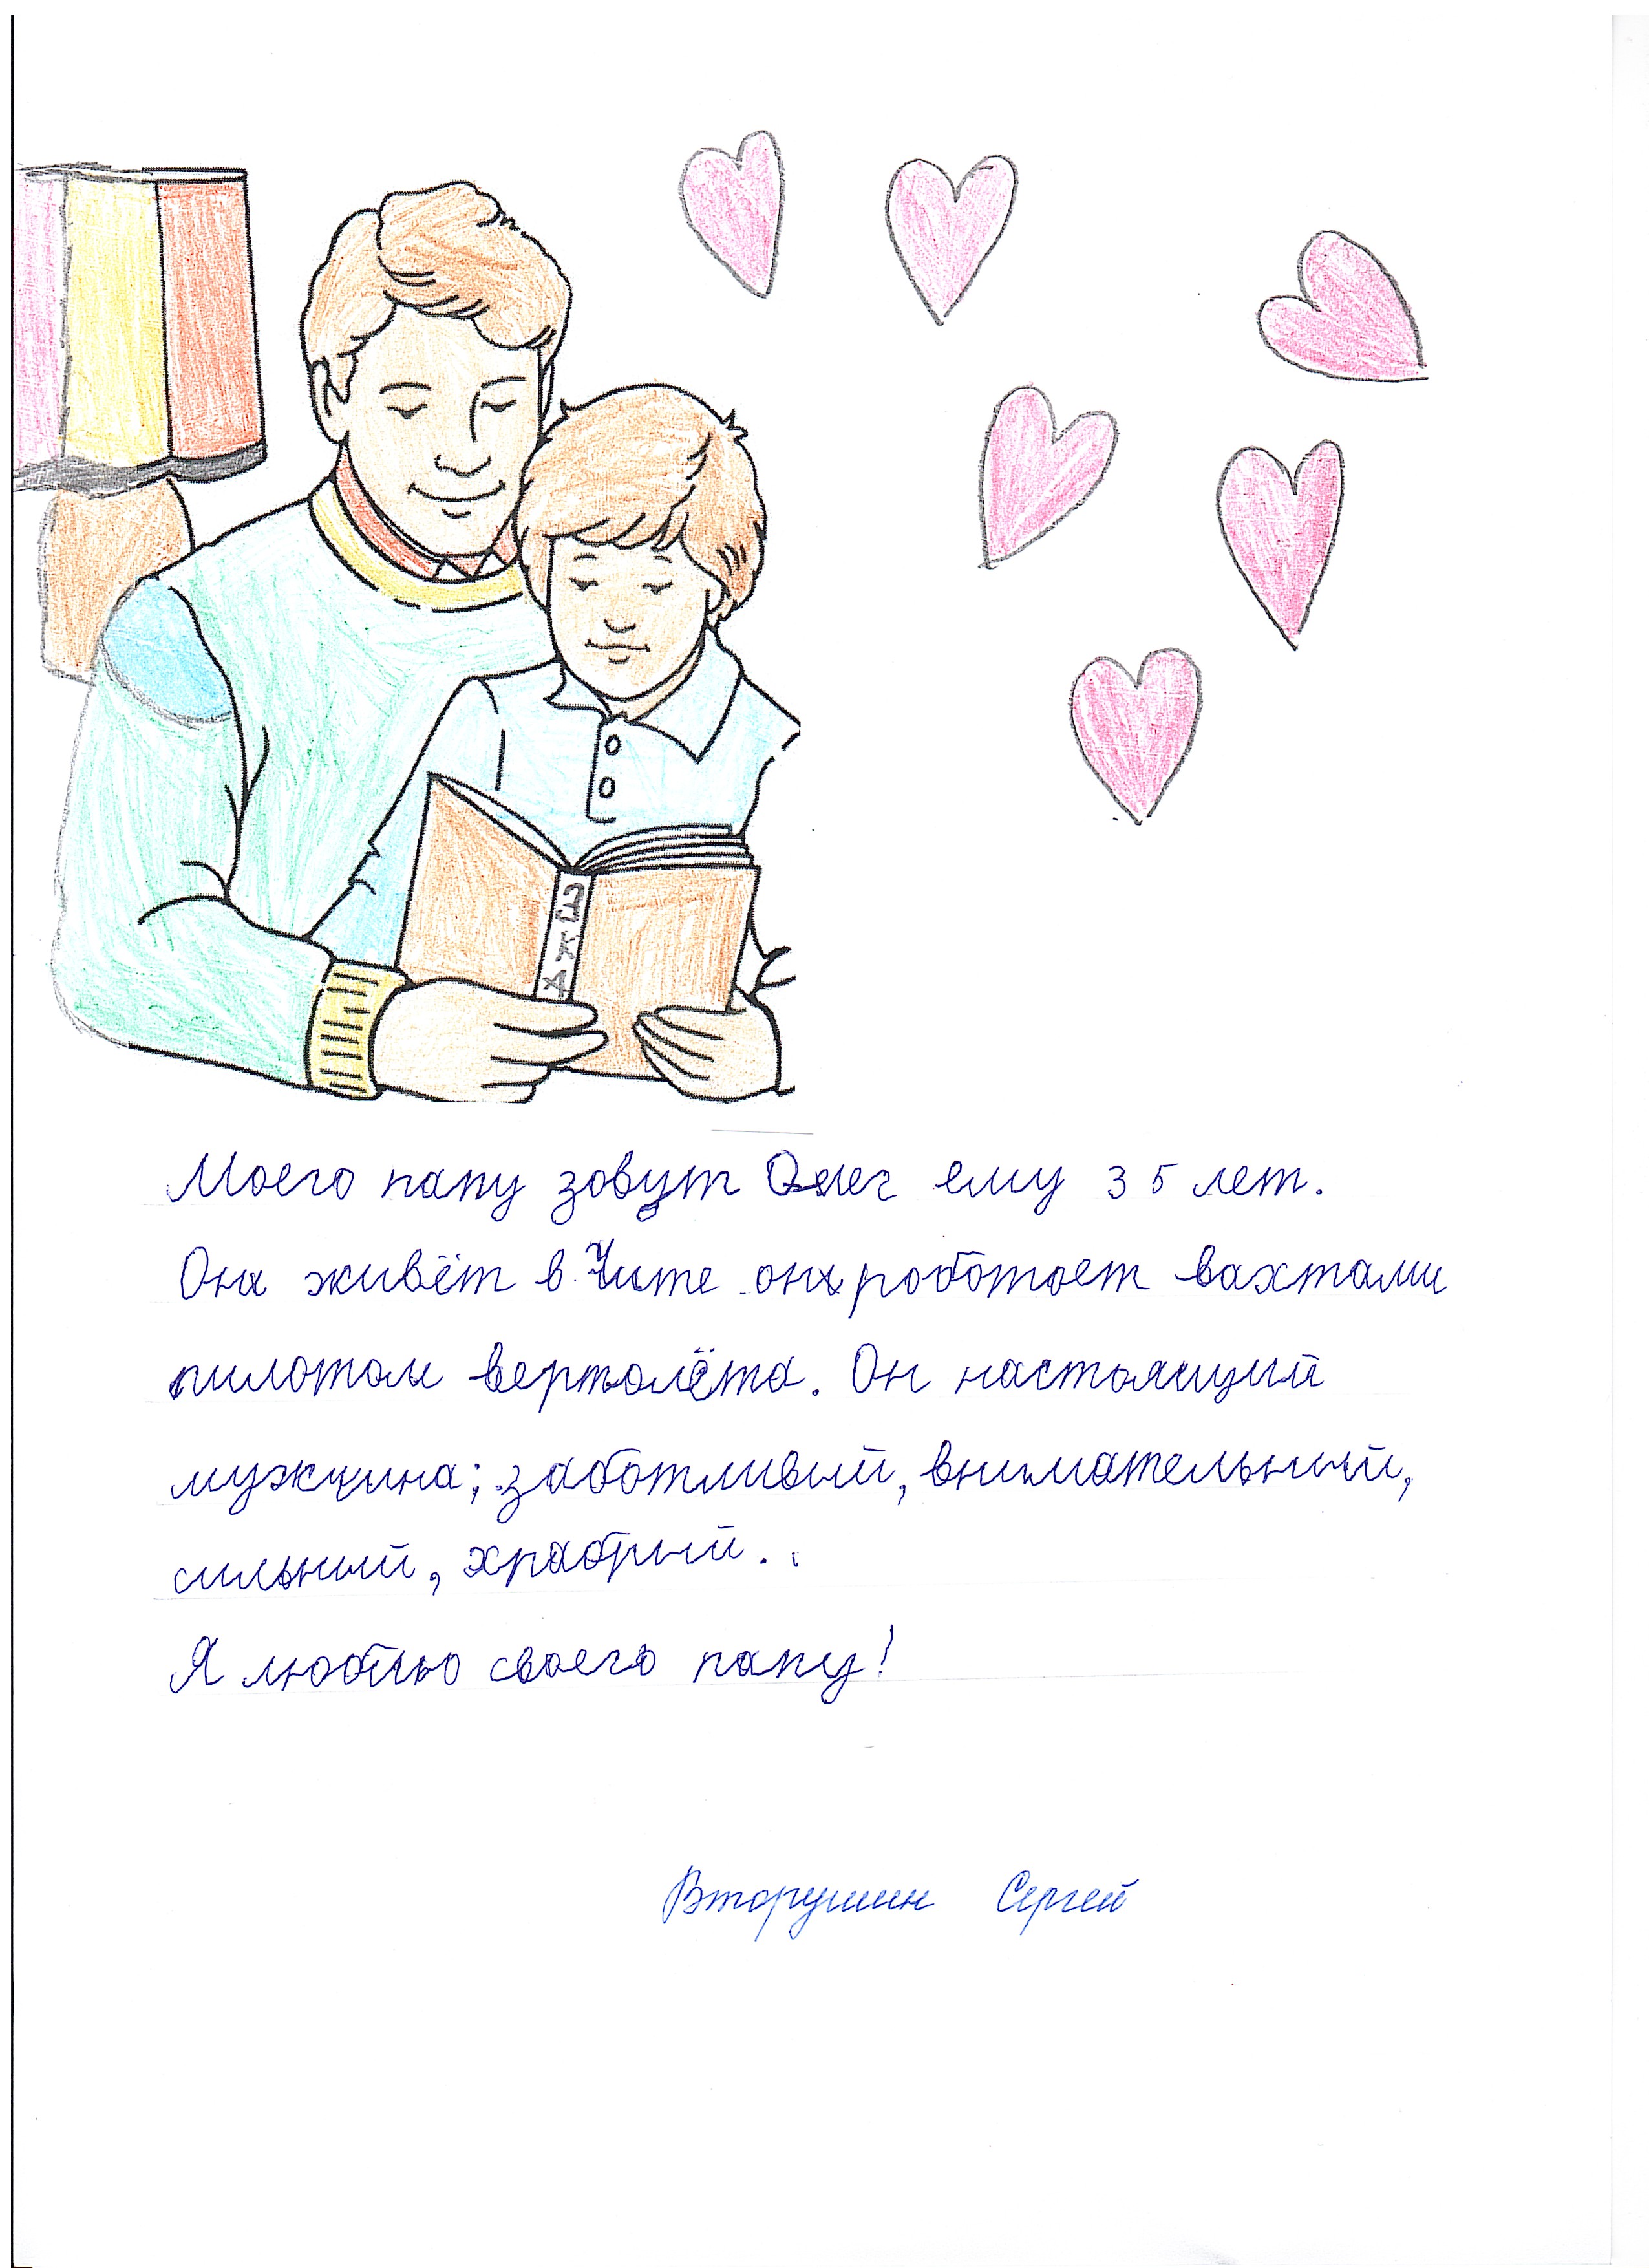 Моего папу зовут Олег ему 35 лет.
Он живёт в Чите он роботает вахтами
пилотом вертолёта. Он настоящий
мужчина; заботливый, внимательный,
сильный, храбрый..
Я люблю своего папу!
Вторушин Сергей